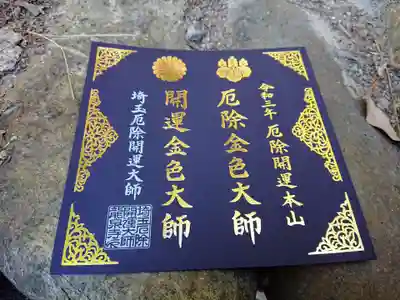 令和三年 厄除開運本山
厄除金色大師
開運金色大師
埼玉厄除開運大師